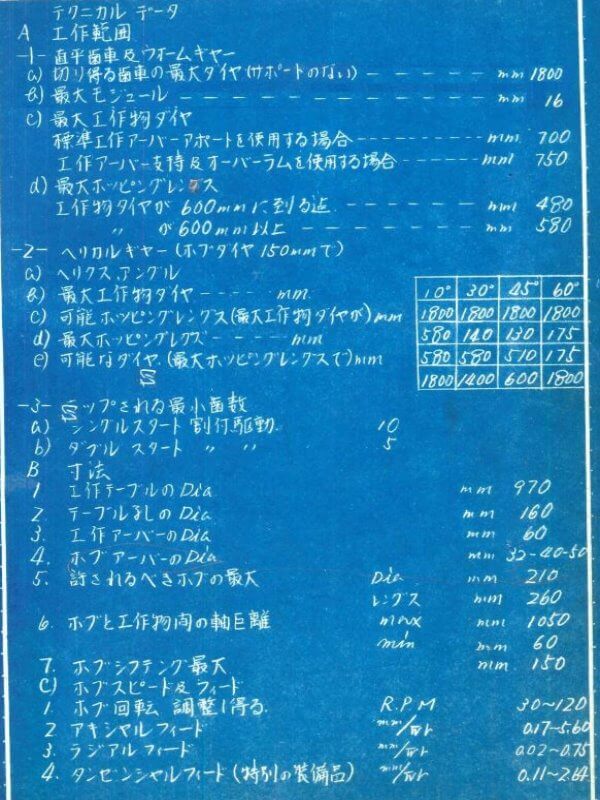 テクニカル データ
A 工作範囲
-1- 直平歯車及ウオームギヤー
a) 切り得る歯車の最大ダイヤ(サポートのない) ------ mm 1800
b) 最大モジュール ------------ mm 16
c) 最大工作物ダイヤ
標準工作アーバーアポートを使用する場合 --------- mm 700
工作アーバー支持及オーバーラムを使用する場合 ------ mm 750
d) 最大ホッピングレングス
工作物ダイヤが 600mmに到る迄 ------- mm 480
〃 が600mm以上 --------- mm 580
-2- ヘリカルギヤー(ホブダイヤ150mmで)
a) ヘリクスアングル 10° 30° 45° 60°
b) 最大工作物ダイヤ ---- mm 1800 1800 1800 1800
c) 可能ホッピングレングス(最大工作物ダイヤが) mm 580 140 130 175
d) 最大ホッピングレグズ ---- mm 580 580 510 175
e) 可能なダイヤ(最大ホッピングレングスで)mm 1800 1400 600 1800
-3- ラップされる最小歯数
a) シングルスタート 割付駆動 10
b) ダブル スタート 〃 〃 5
B 寸法
1 工作テーブルのDia mm 970
2. テーブル孔のDia mm 160
3. 工作アーバーのDia mm 60
4. ホブアーバーのDia mm 32-40-50
5. 許されるべきホブの最大 Dia mm 210
レングス mm 260
6. ホブと工作物間の軸巨離 max mm 1050
min mm 60
7. ホブシフテング最大 mm 150
C) ホブスピード及フィード
1. ホブ回転 調整し得る R.P.M 30~120
2 アキシャルフィード mm/ 0.17~5.60
3. ラジアルフィード mm/ 0.02~0.75
4. タンゼンシャルフィード(特別の装備品) mm/ 0.11~2.64